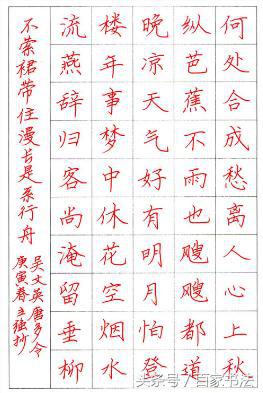 何处合成愁离人心上秋
纵芭蕉不雨也飕飕都道
晚凉天气好有明月怕登
楼年事梦中休花空烟水
流燕辞归客尚淹留垂柳
不萦裙带住漫长是系行舟
吴文英唐多令
庚寅春王强抄
头条号/百家书法